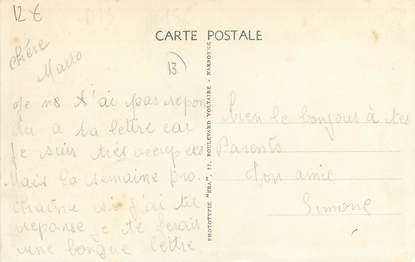 12 €
CARTE POSTALE
13
chère
Mallo
je ne t'ai pas repon
du a ta lettre car
je suis très occupées
Mais la semaine pro
chaine si j'ai ta
reponse je te ferais
une longue lettre
PHOTOTYPIE "ERA", 11, BOULEVARD VOLTAIRE - NARBONNE
bien le bonjous à tes
Parents
Ton amie
Simone